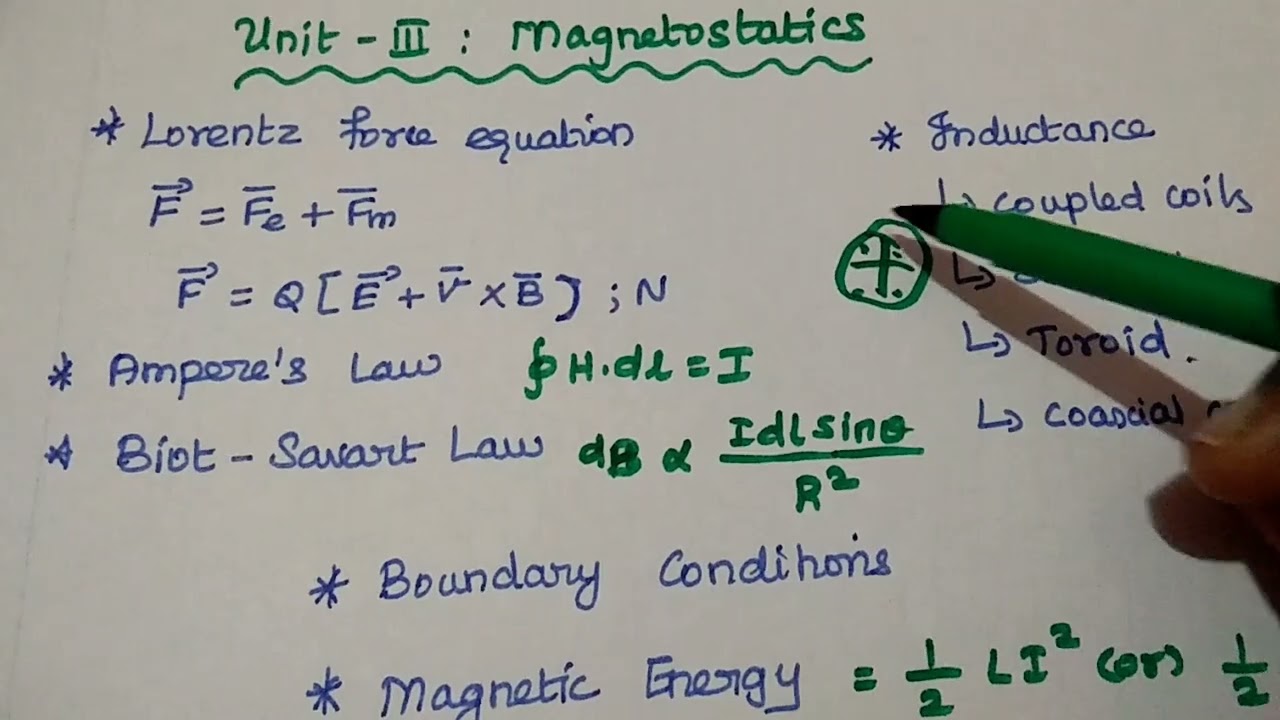 Unit - III : Magnetostatics
* Lorentz force equation
F⃗ = F̅e + F̅m
F⃗ = Q [ E⃗ + V̅ × B̅ ] ; N
* Ampere's Law ∮ H.dl = I
* Biot - Savart Law dB ∝ Idl sinθ / R²
* Inductance
↳ coupled coils
↳
↳ Toroid.
↳ coaxial
* Boundary Conditions
* Magnetic Energy = 1/2 LI² (or) 1/2